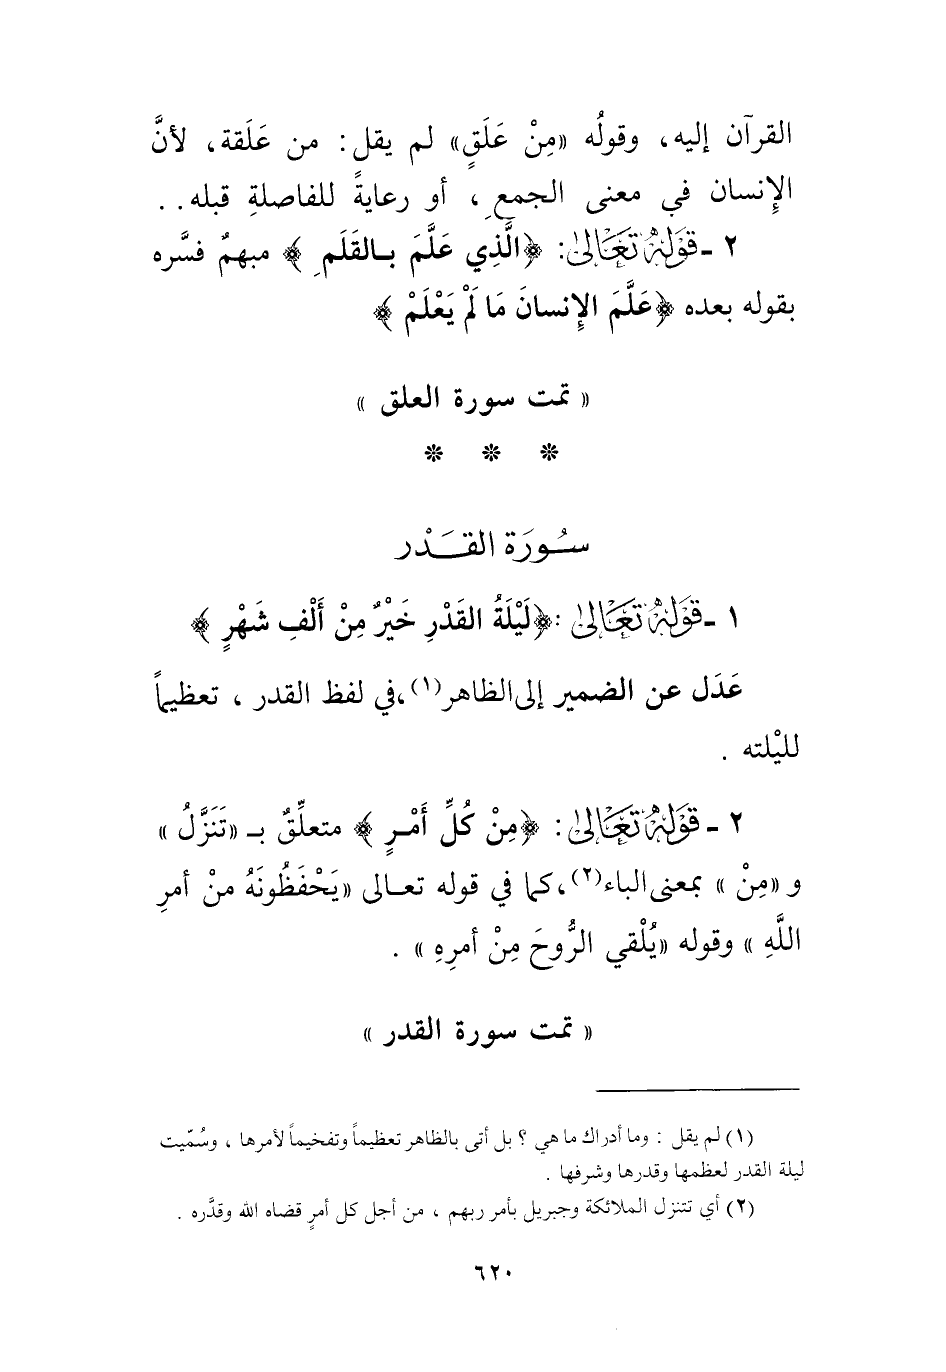 القرآن إليه، وقولُه «مِنْ عَلَقٍ» لم يقل: من عَلَقة، لأنَّ
الإِنسان في معنى الجمعِ، أو رعايةً للفاصلةِ قبله..
٢ - قَوْلُهُ تَعَالَىٰ: ﴿الَّذِي عَلَّمَ بالقَلَمِ﴾ مبهمٌ فسَّره
بقوله بعده ﴿عَلَّمَ الإِنسانَ مَا لَمْ يَعْلَمْ﴾
« تمت سورة العلق »
* * *
سُورَة القَدْر
١ - قَوْلُهُ تَعَالَىٰ: ﴿لَيْلَةُ القَدْرِ خَيْرٌ مِنْ أَلْفِ شَهْرٍ﴾
عَدَل عن الضمير إلى الظاهر(١)، في لفظ القدر ، تعظيماً
لليْلته .
٢ - قَوْلُهُ تَعَالَىٰ: ﴿مِنْ كُلِّ أَمْرٍ﴾ متعلِّقٌ بـ «تَنَزَّلُ»
و «مِنْ » بمعنى الباء(٢)، كما في قوله تعالى «يَحْفَظُونَهُ منْ أمرِ
اللَّهِ » وقوله «يُلْقي الرُّوحَ مِنْ أمرِهِ » .
« تمت سورة القدر »
(١) لم يقل : وما أدراك ما هي ؟ بل أتى بالظاهر تعظيماً وتفخيماً لأمرها ، وسُمّيت
ليلة القدر لعظمها وقدرها وشرفها .
(٢) أي تتنزل الملائكة وجبريل بأمر ربهم ، من أجل كل أمرٍ قضاه الله وقدَّره .
٦٢٠